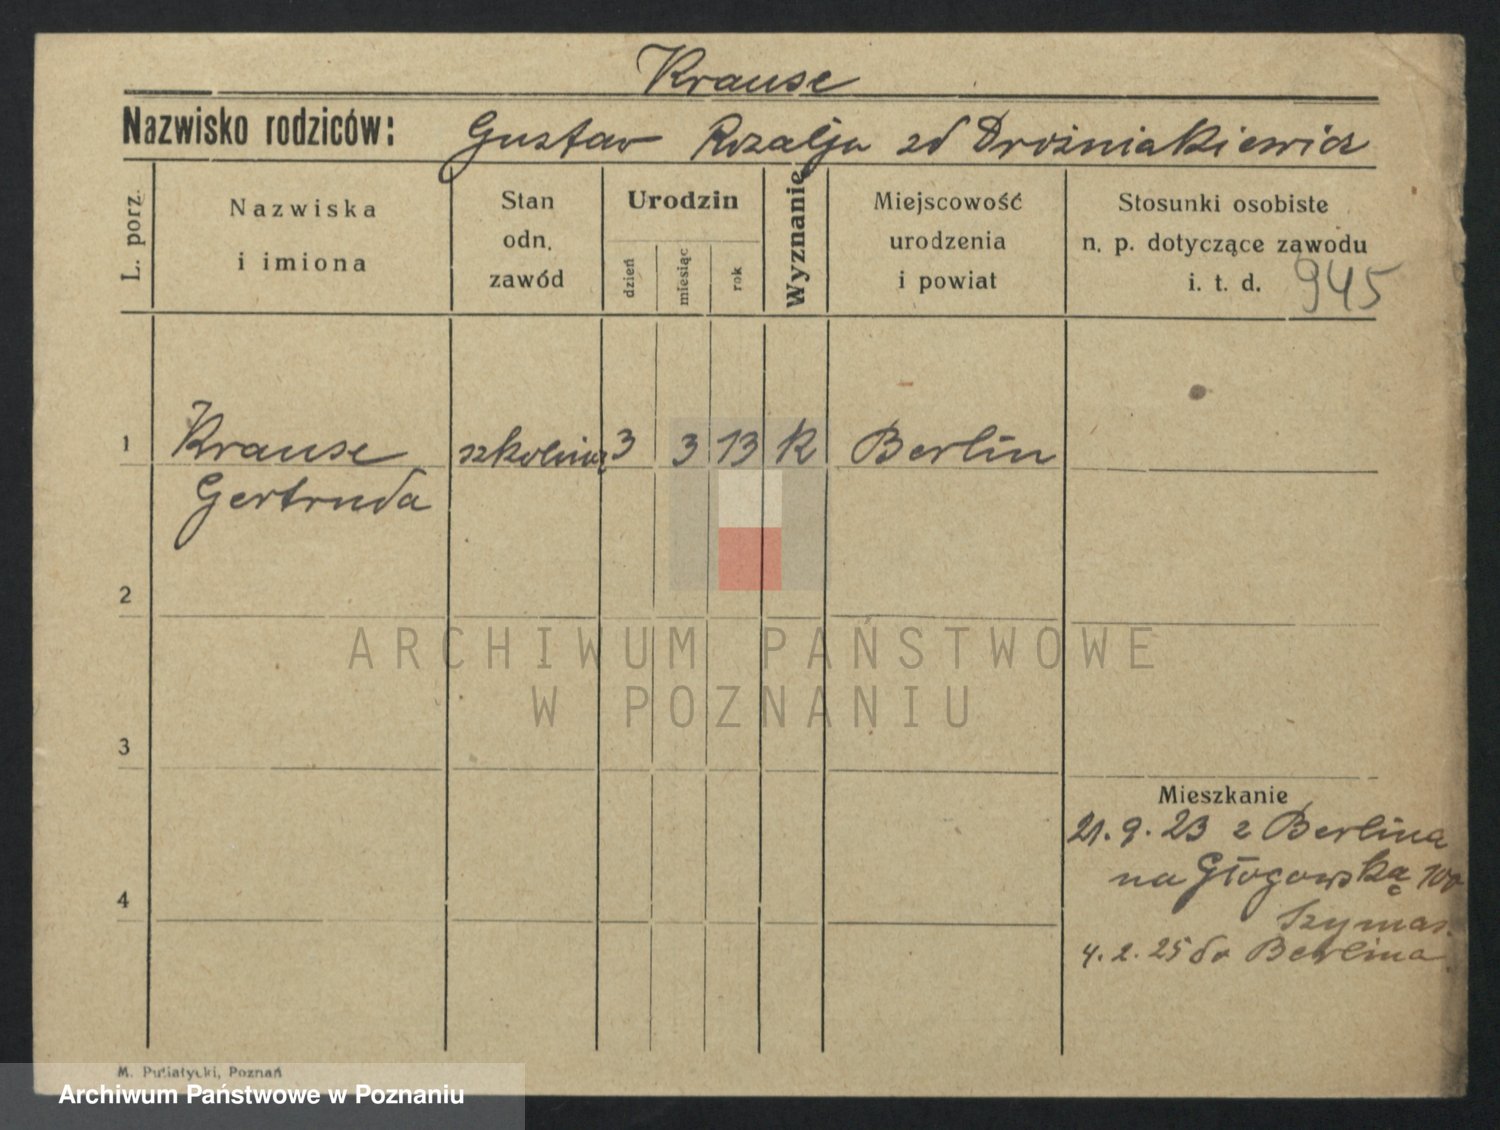 Krause
Nazwisko rodziców: Gustaw Rozalja zd Drożniakiewicz
L. porz.
Nazwiska
i imiona
Stan
odn.
zawód
Urodzin
dzień
miesiąc
rok
Wyznanie
Miejscowość
urodzenia
i powiat
Stosunki osobiste
n. p. dotyczące zawodu
i. t. d. 945
1 Krause 3 3 13 k Berlin
Gertruda
2
ARCHIWUM PAŃSTWOWE
W POZNANIU
3
Mieszkanie
21. 9. 23 z Berlina
na Głogowską 100
4
Szymas.
4. 2. 25 do Berlina
M. Putiatycki, Poznań
Archiwum Państwowe w Poznaniu